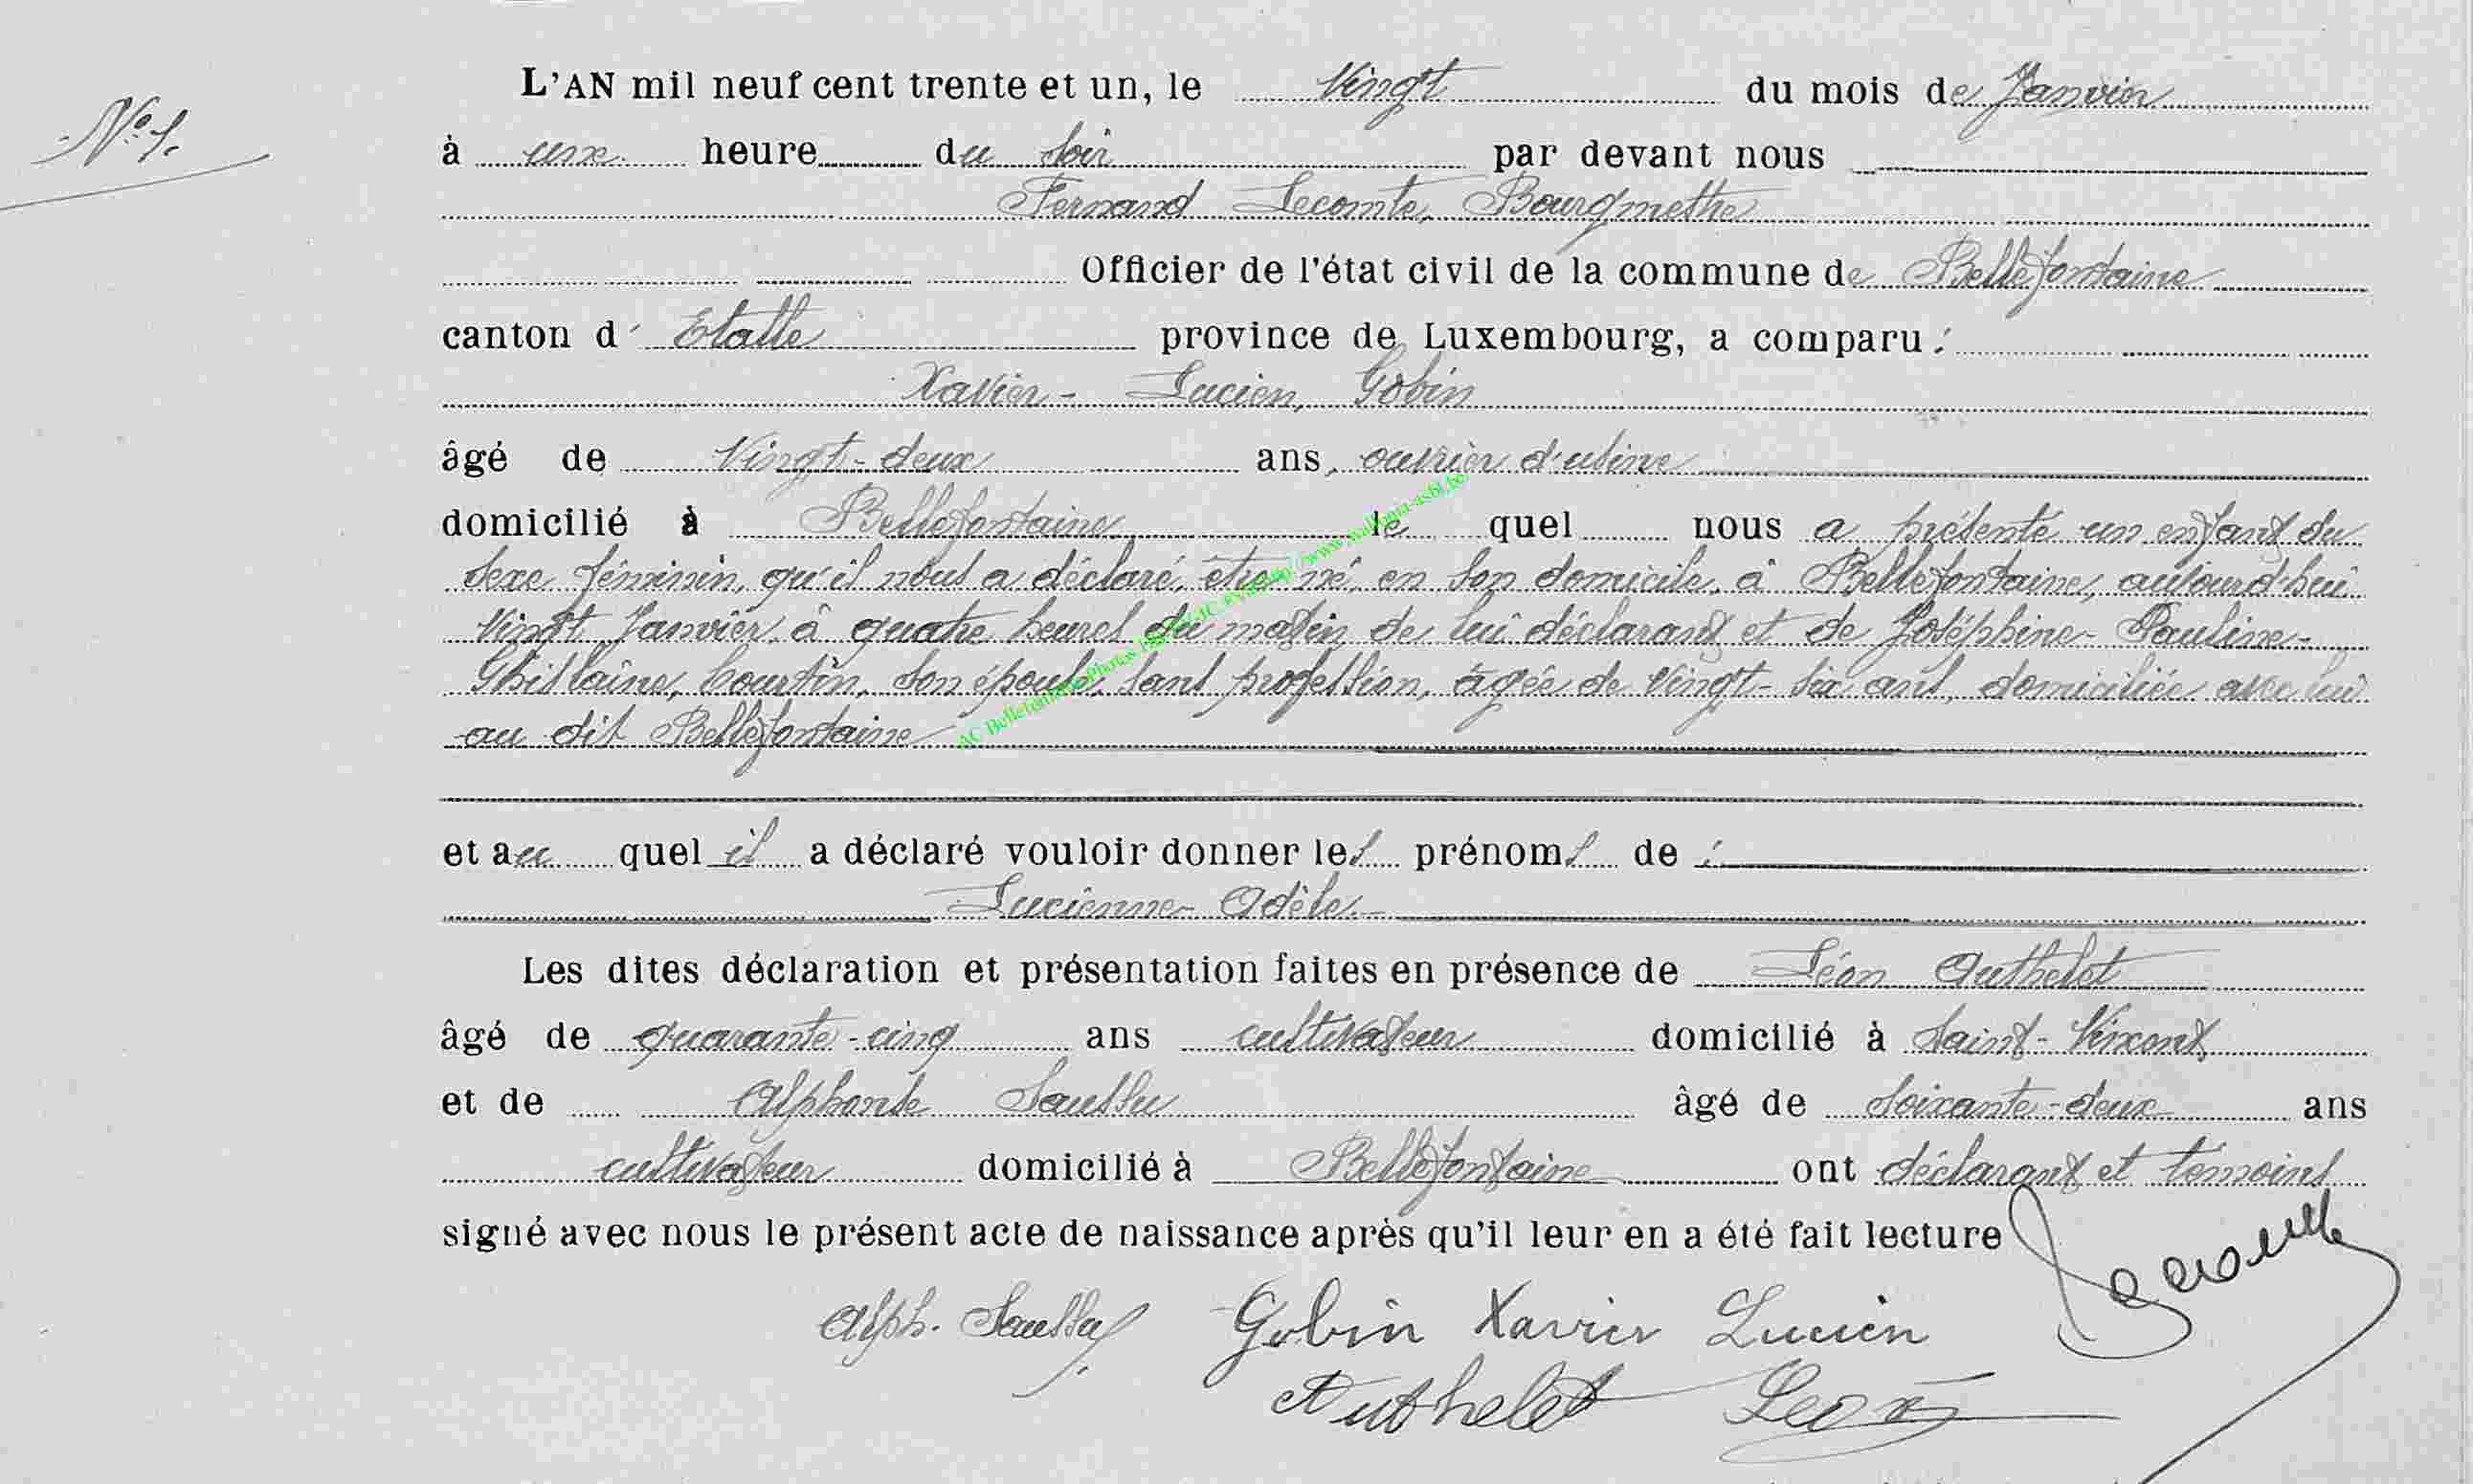 N° 1.
L'AN mil neuf cent trente et un, le Vingt du mois de Janvier
à une heure du soir par devant nous
Fernand Lecomte, Bourgmethe
Officier de l'état civil de la commune de Bellefontaine
canton d' Etalle province de Luxembourg, a comparu :
Xavier - Lucien, Gobin
âgé de Vingt-deux ans, ouvrier d'usine
domicilié à Bellefontaine le quel nous a présenté un enfant du
sexe féminin, qu'il nous a déclaré être né en son domicile, à Bellefontaine, aujourd'hui
vingt Janvier à quatre heures du matin de lui déclarant et de Joséphine - Pauline -
Ghislaine, Courtin, son épouse, sans profession, âgée de vingt-six ans, domiciliée avec lui
au dit Bellefontaine
et au quel il a déclaré vouloir donner les prénoms de :
Lucienne - Adèle.
Les dites déclaration et présentation faites en présence de Léon Authelet
âgé de quarante-cinq ans cultivateur domicilié à Saint-Vincent
et de Alphonse Saussu âgé de soixante-deux ans
cultivateur domicilié à Bellefontaine ont déclarant et témoins
signé avec nous le présent acte de naissance après qu'il leur en a été fait lecture
Alph. Saussu Gobin Xavier Lucien
Authelet Leon